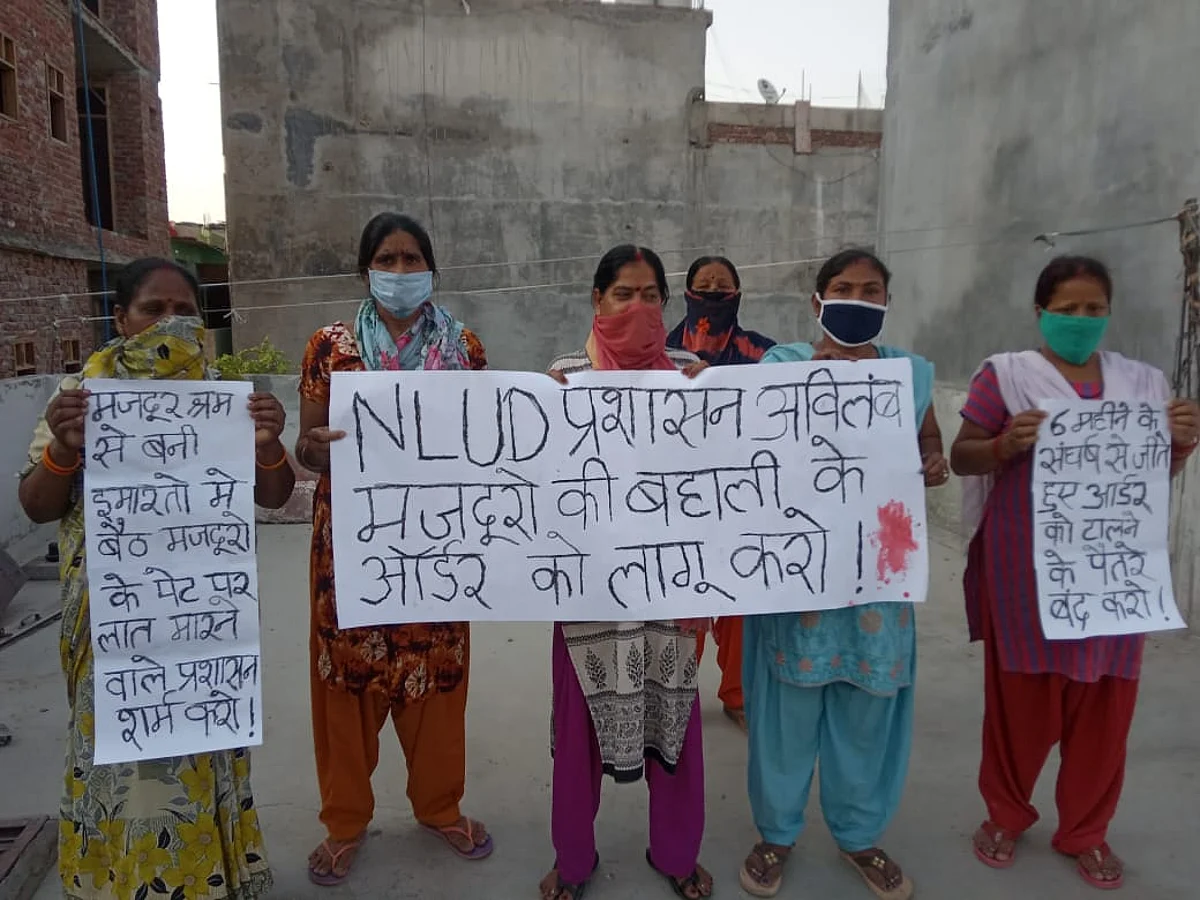 मजदूर श्रम
से बनी
इमारतो मे
बैठ मजदूरो
के पेट पर
लात मारने
वाले प्रशासन
शर्म करो!
NLUD प्रशासन अविलंब
मजदूरो की बहाली के
ऑर्डर को लागू करो!
6 महीने के
संघर्ष से जीते
हुए आर्डर
को टालने
के पैतरे
बंद करो!